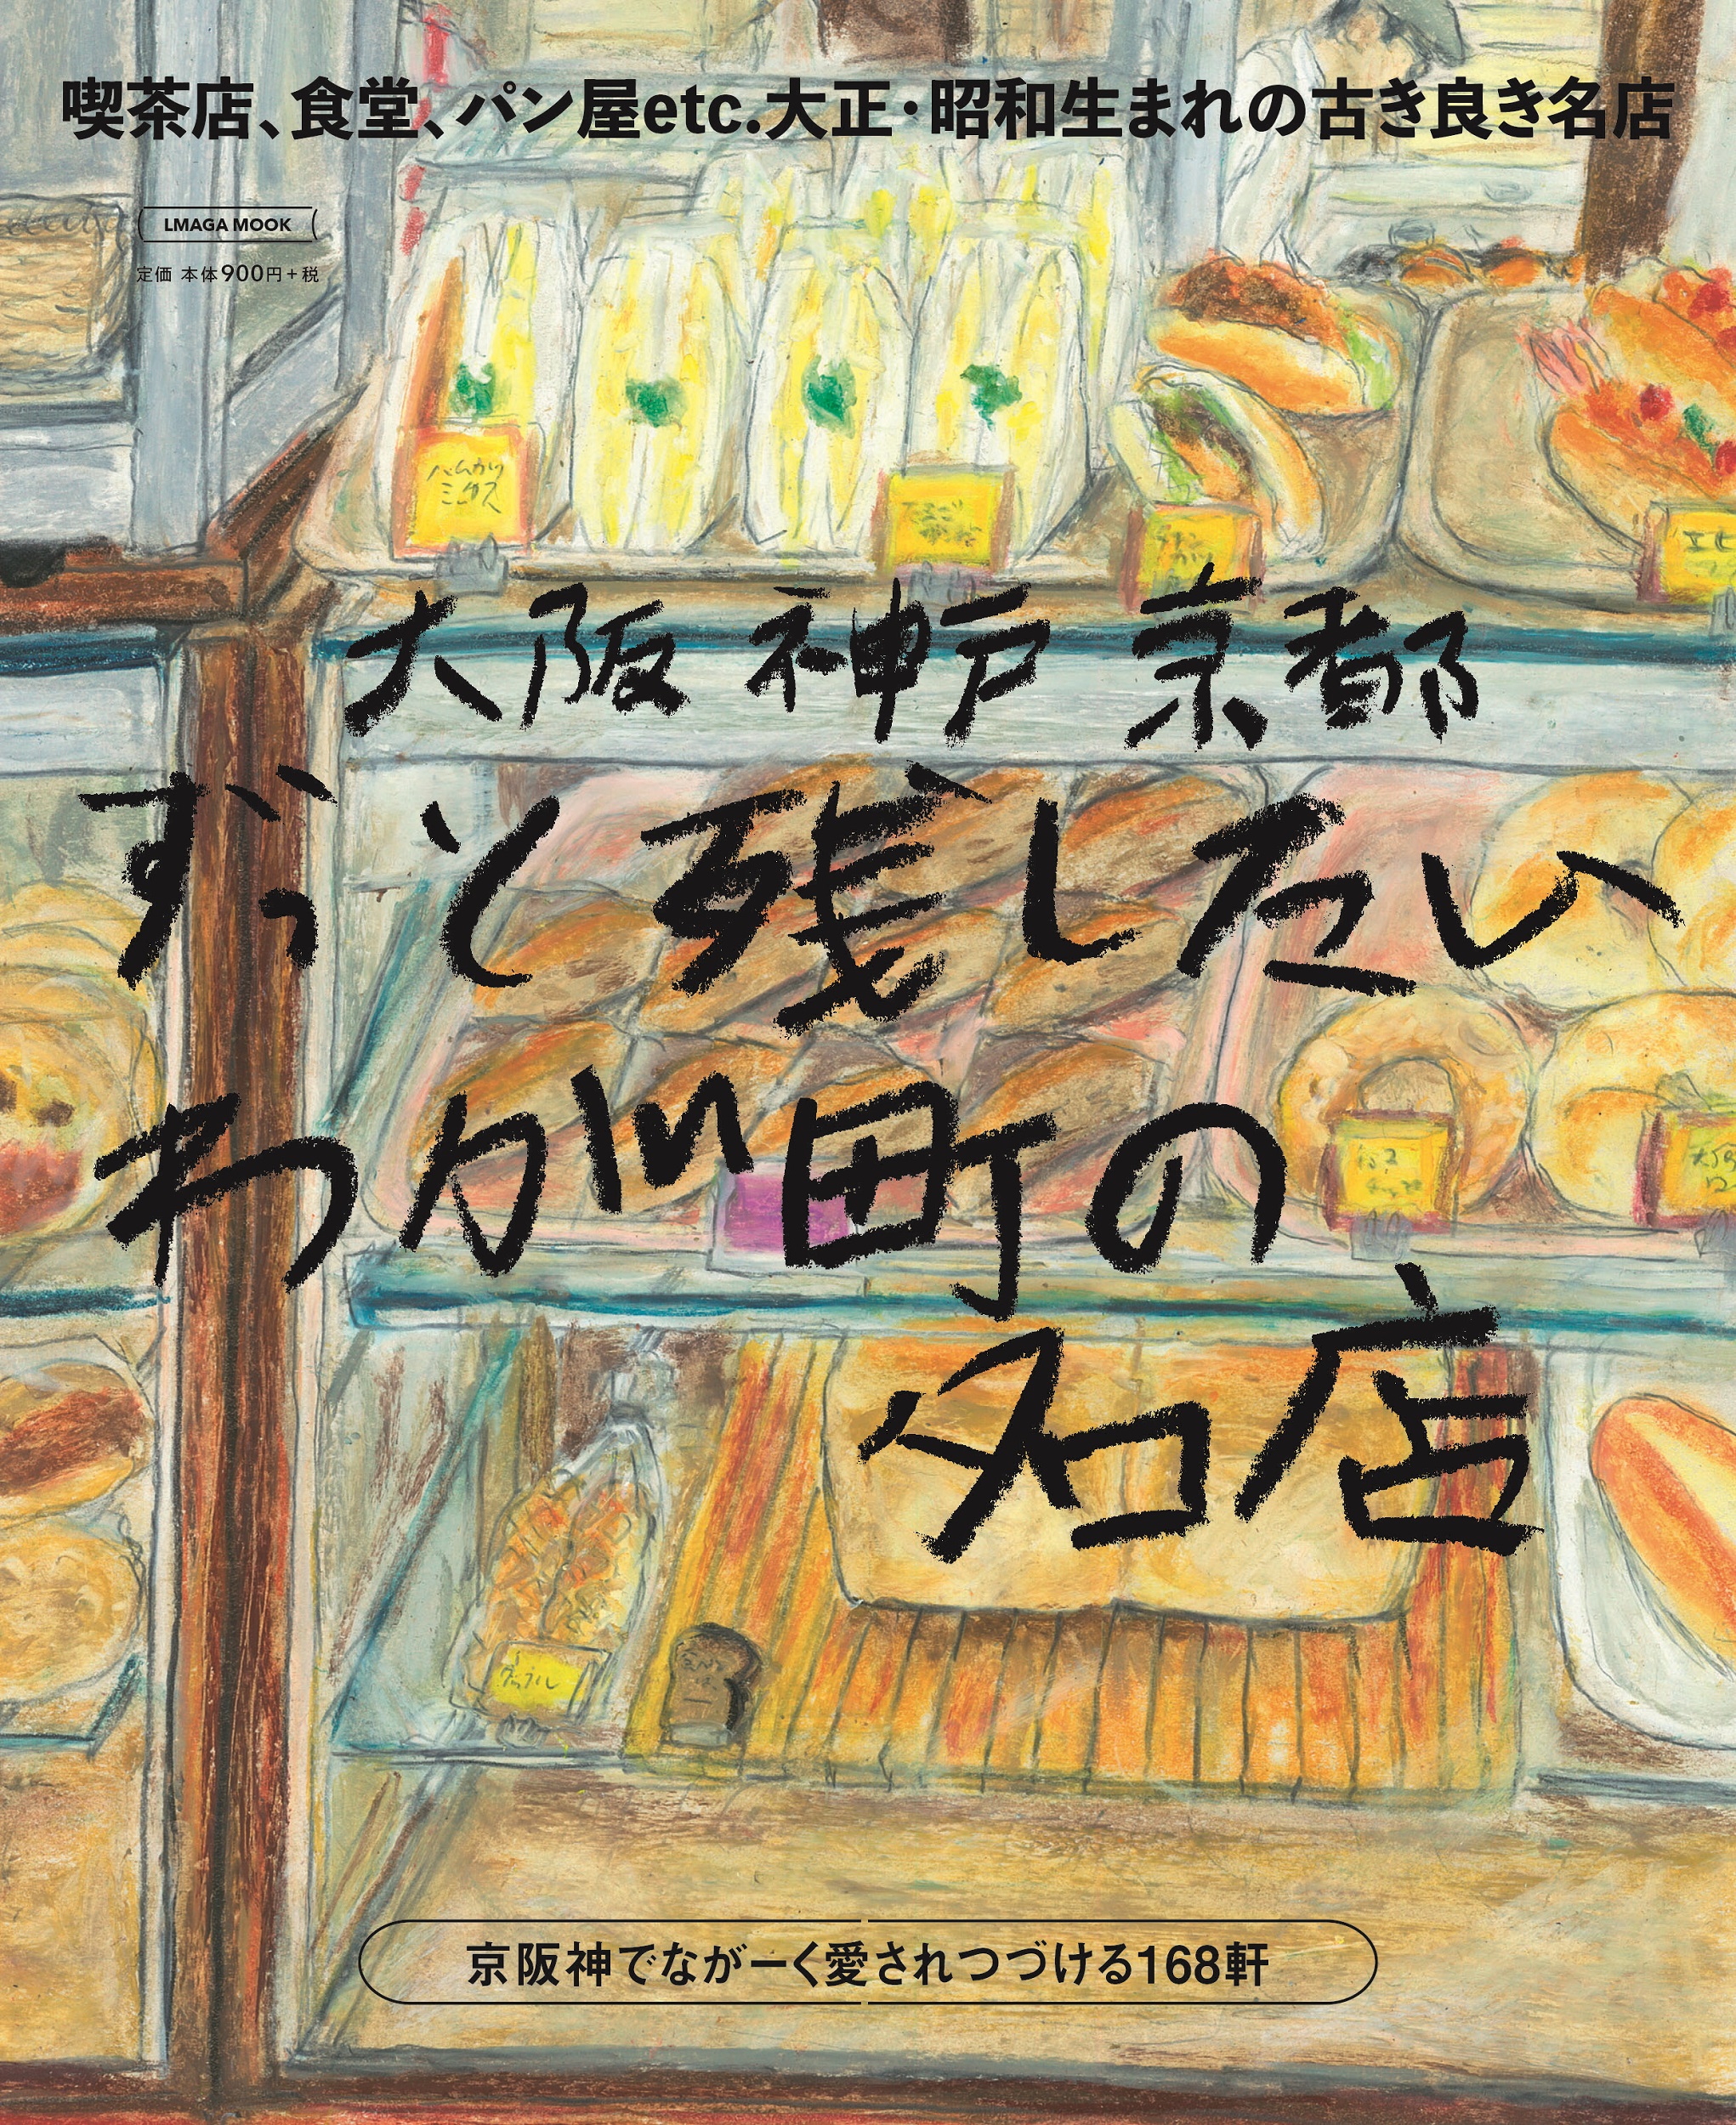 喫茶店、食堂、パン屋etc.大正・昭和生まれの古き良き名店
LMAGA MOOK
定価 本体900円+税
ハムカツ
ミックス
エビ
大阪 神戸 京都
ずっと残したい
わが町の
名店
京阪神でながーく愛されつづける168軒